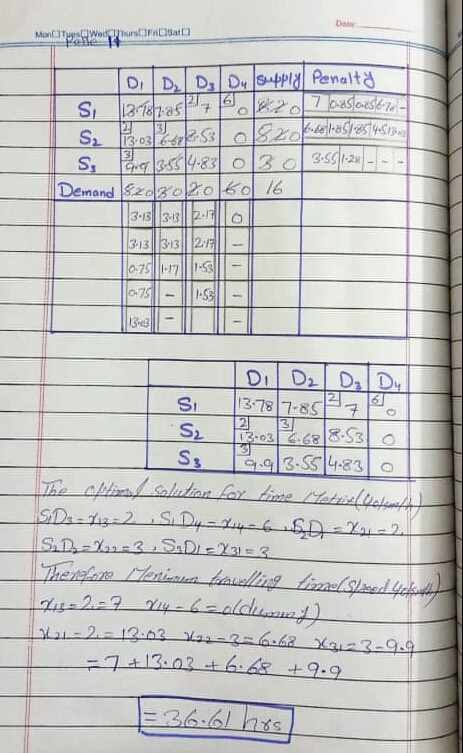 Date:
Mon Tues Wed Thurs Fri Sat
D1 D2 D3 D4 Supply Penalty
S1 13.78 7.85 2 7 6 0 820 7 0.85 0.85 6.78 -
S2 2 13.03 3 6.68 8.53 0 520 6.68 1.85 1.85 4.5 13.03
S3 3 9.9 3.55 4.83 0 30 3.55 1.28 - - -
Demand 520 30 20 60 16
3.13 3.13 2.17 0
3.13 3.13 2.17 -
0.75 1.17 1.53 -
0.75 - 1.53 -
13.03 - -
D1 D2 D3 D4
S1 13.78 7.85 2 7 6 0
S2 2 13.03 3 6.68 8.53 0
S3 3 9.9 3.55 4.83 0
The optimal solution for time Matrix(40km/h)
S1D3=x13=2, S1D4=x14=6, S2D1=x21=2,
S2D2=x22=3, S3D1=x31=3
Therefore Menimum travelling time(Speed 40km/h)
x13=2=7 x14-6=0(dummy)
x21=2=13.03 x22-3=6.68 x31=3-9.9
=7+13.03+6.68 +9.9
=36.61 hrs